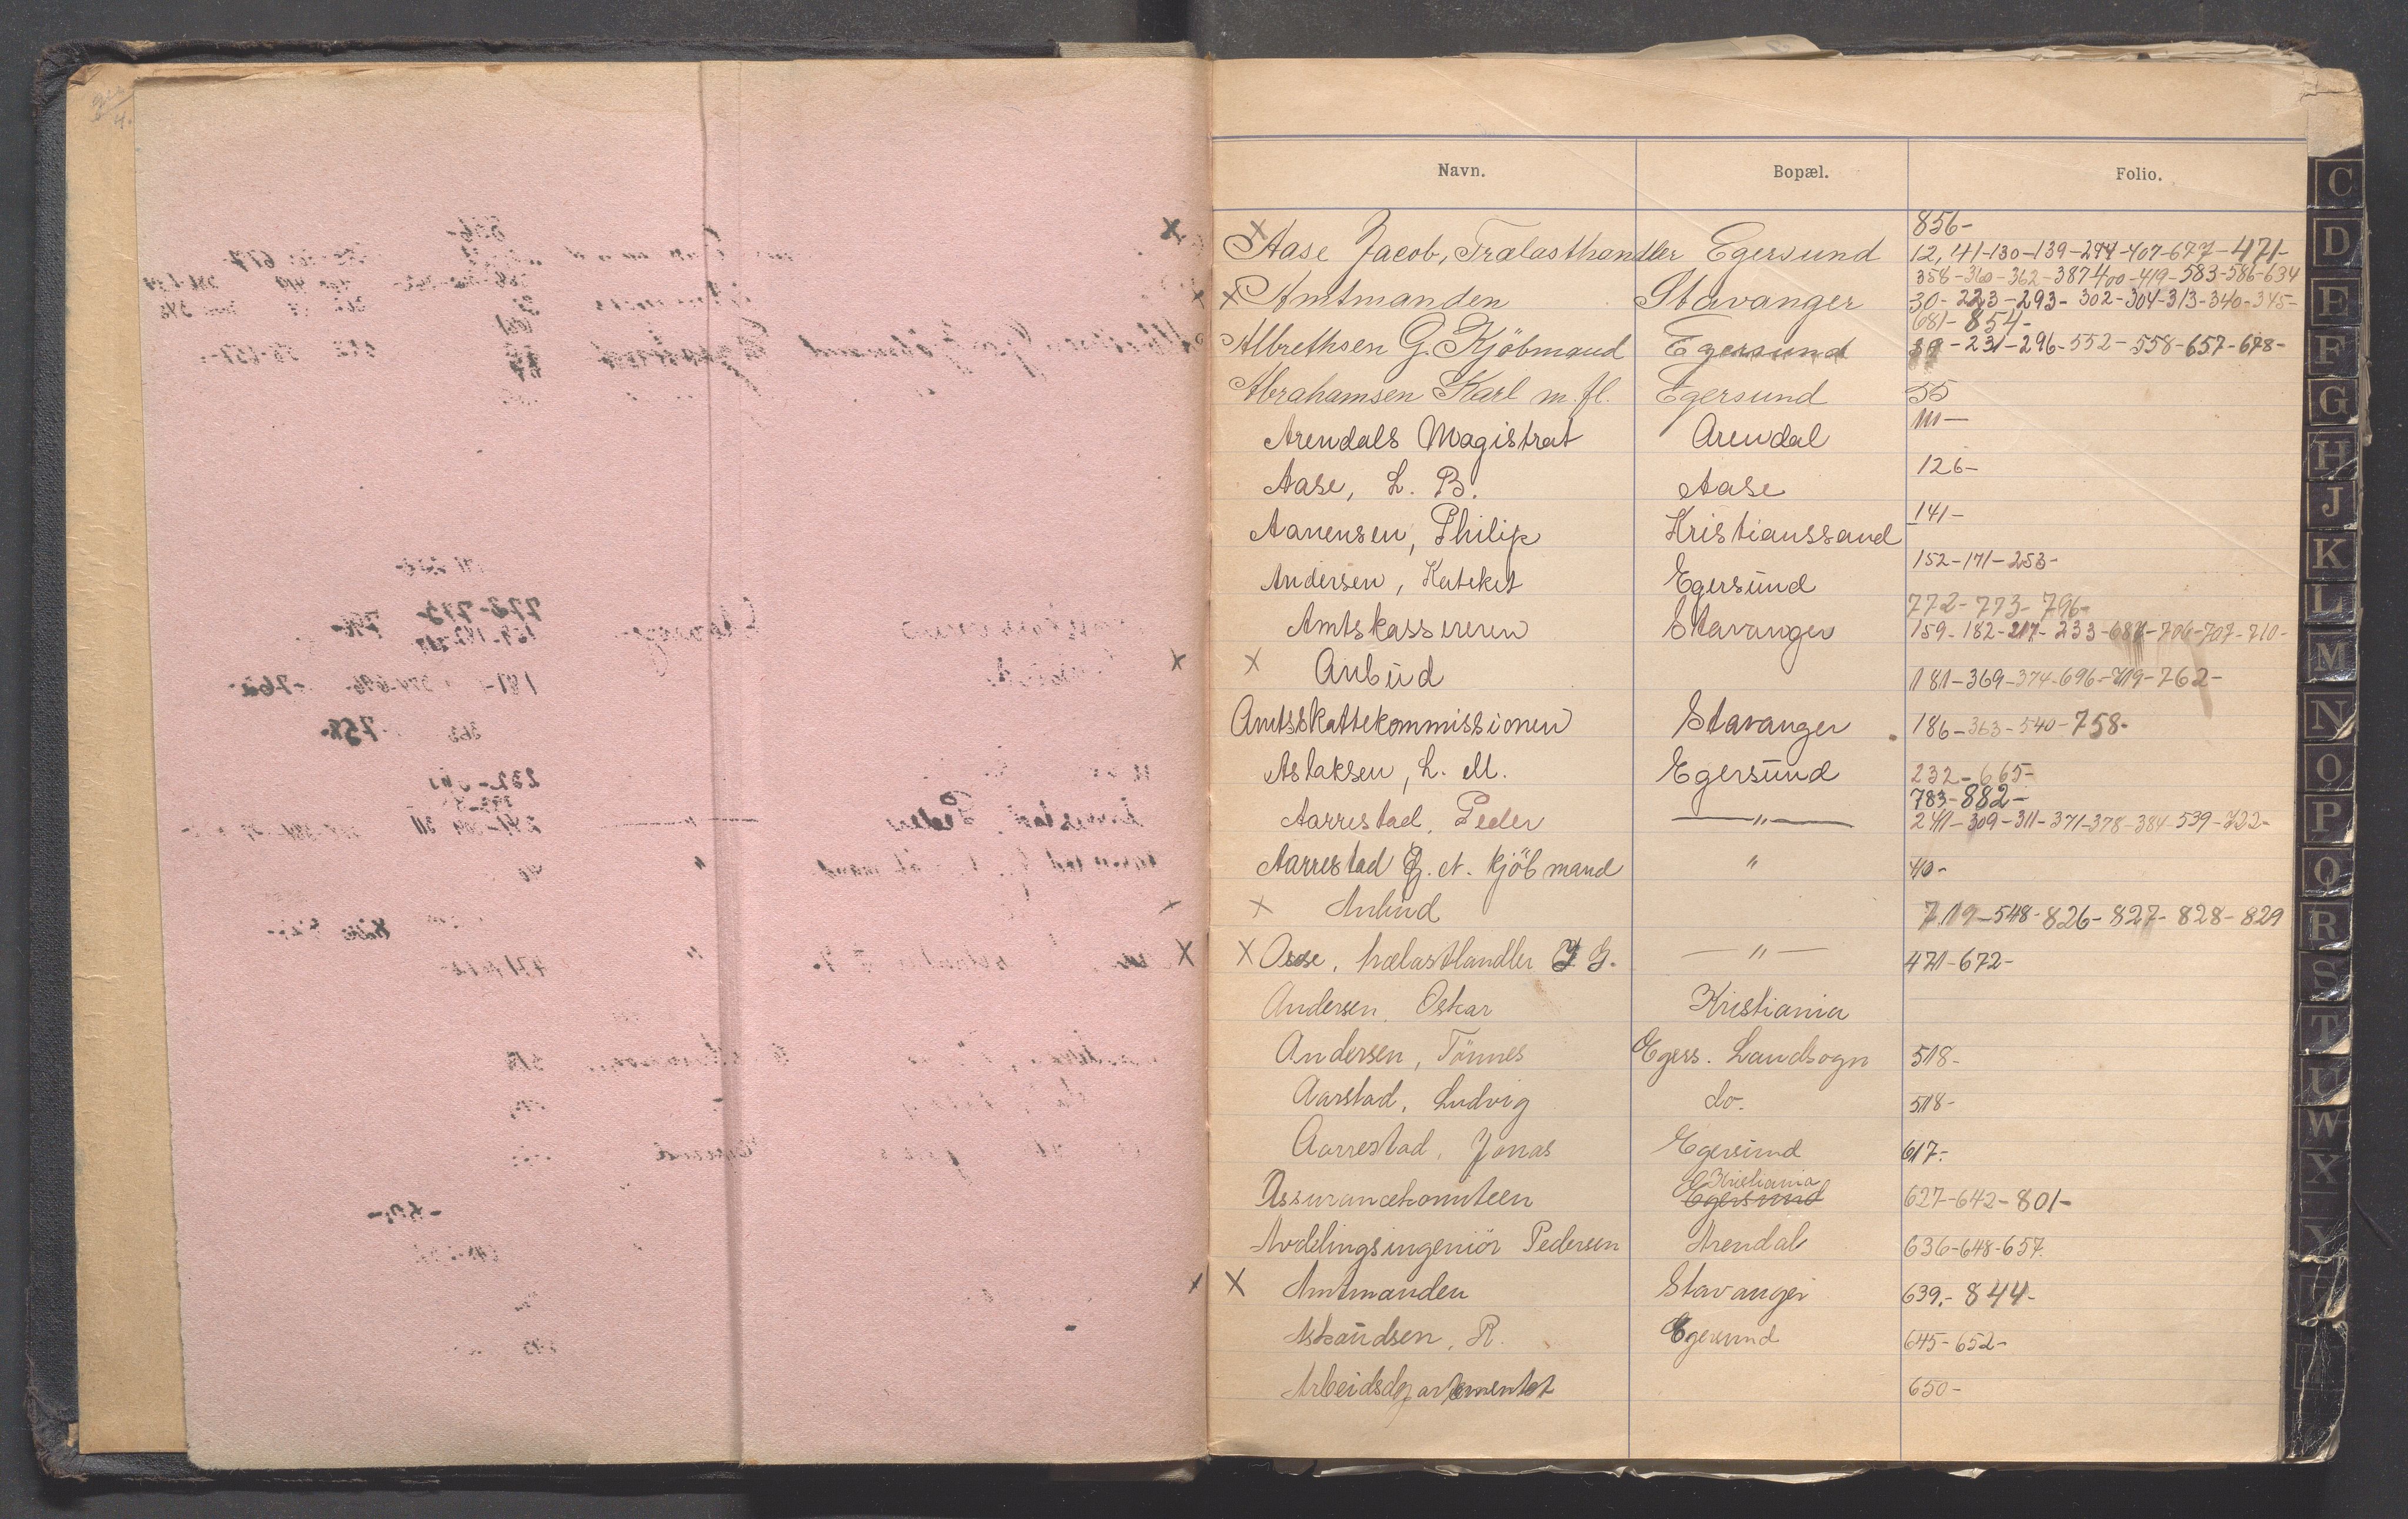 Navn. Bopæl. Folio.
856-
X Aase Jacob, Trælasthandler Egersund 12, 141-130-139-294-407-677-471-
358-360-362-387-400-419-583-586-634
X Amtmanden Stavanger 30-223-293-302-304-313-340-345-
681-854-
Albrethsen G. Kjöbmand Egersund 39-231-296-552-558-657-678-
Abrahamsen Karl m. fl. Egersund 55
Arendals Magistrat Arendal 111-
Aase, L. B. Aase 126-
Aanensen, Philip Kristianssand 141-
Andersen, Kateket Egersund 152-171-253-
772-773-796-
Amtskassereren Stavanger 159-182-217-233-687-706-707-710-
X Anbud 181-369-374-696-719-762-
Amtsskattekommissionen Stavanger 186-363-540-758-
Aslaksen, L. M. Egersund 232-665-
783-882-
Aarrestad, Peder —"— 241-309-311-371-378-384-539-722-
Aarrestad G. A. kjöbmand " 40-
X Anbud 719-548-826-827-828-829
X Aase, trælasthandler J. G. —"— 471-672-
Andersen, Oskar Kristiania
Andersen, Tönnes Egers. Landsogn 518-
Aarstad, Ludvig do. 518-
Aarrestad, Jonas Egersund 617-
Kristiania
Assurancekomiteen Egersund 627-642-801-
Avdelingsingeniör Pedersen Arendal 636-648-657.
X Amtmanden Stavanger 639.-844-
R. Egersund 645-652-
Arbeidsdepartementet 650-
C
D
E
F
G
H
J
K
L
M
N
O
P
Q
R
S
T
U
W
X
Y